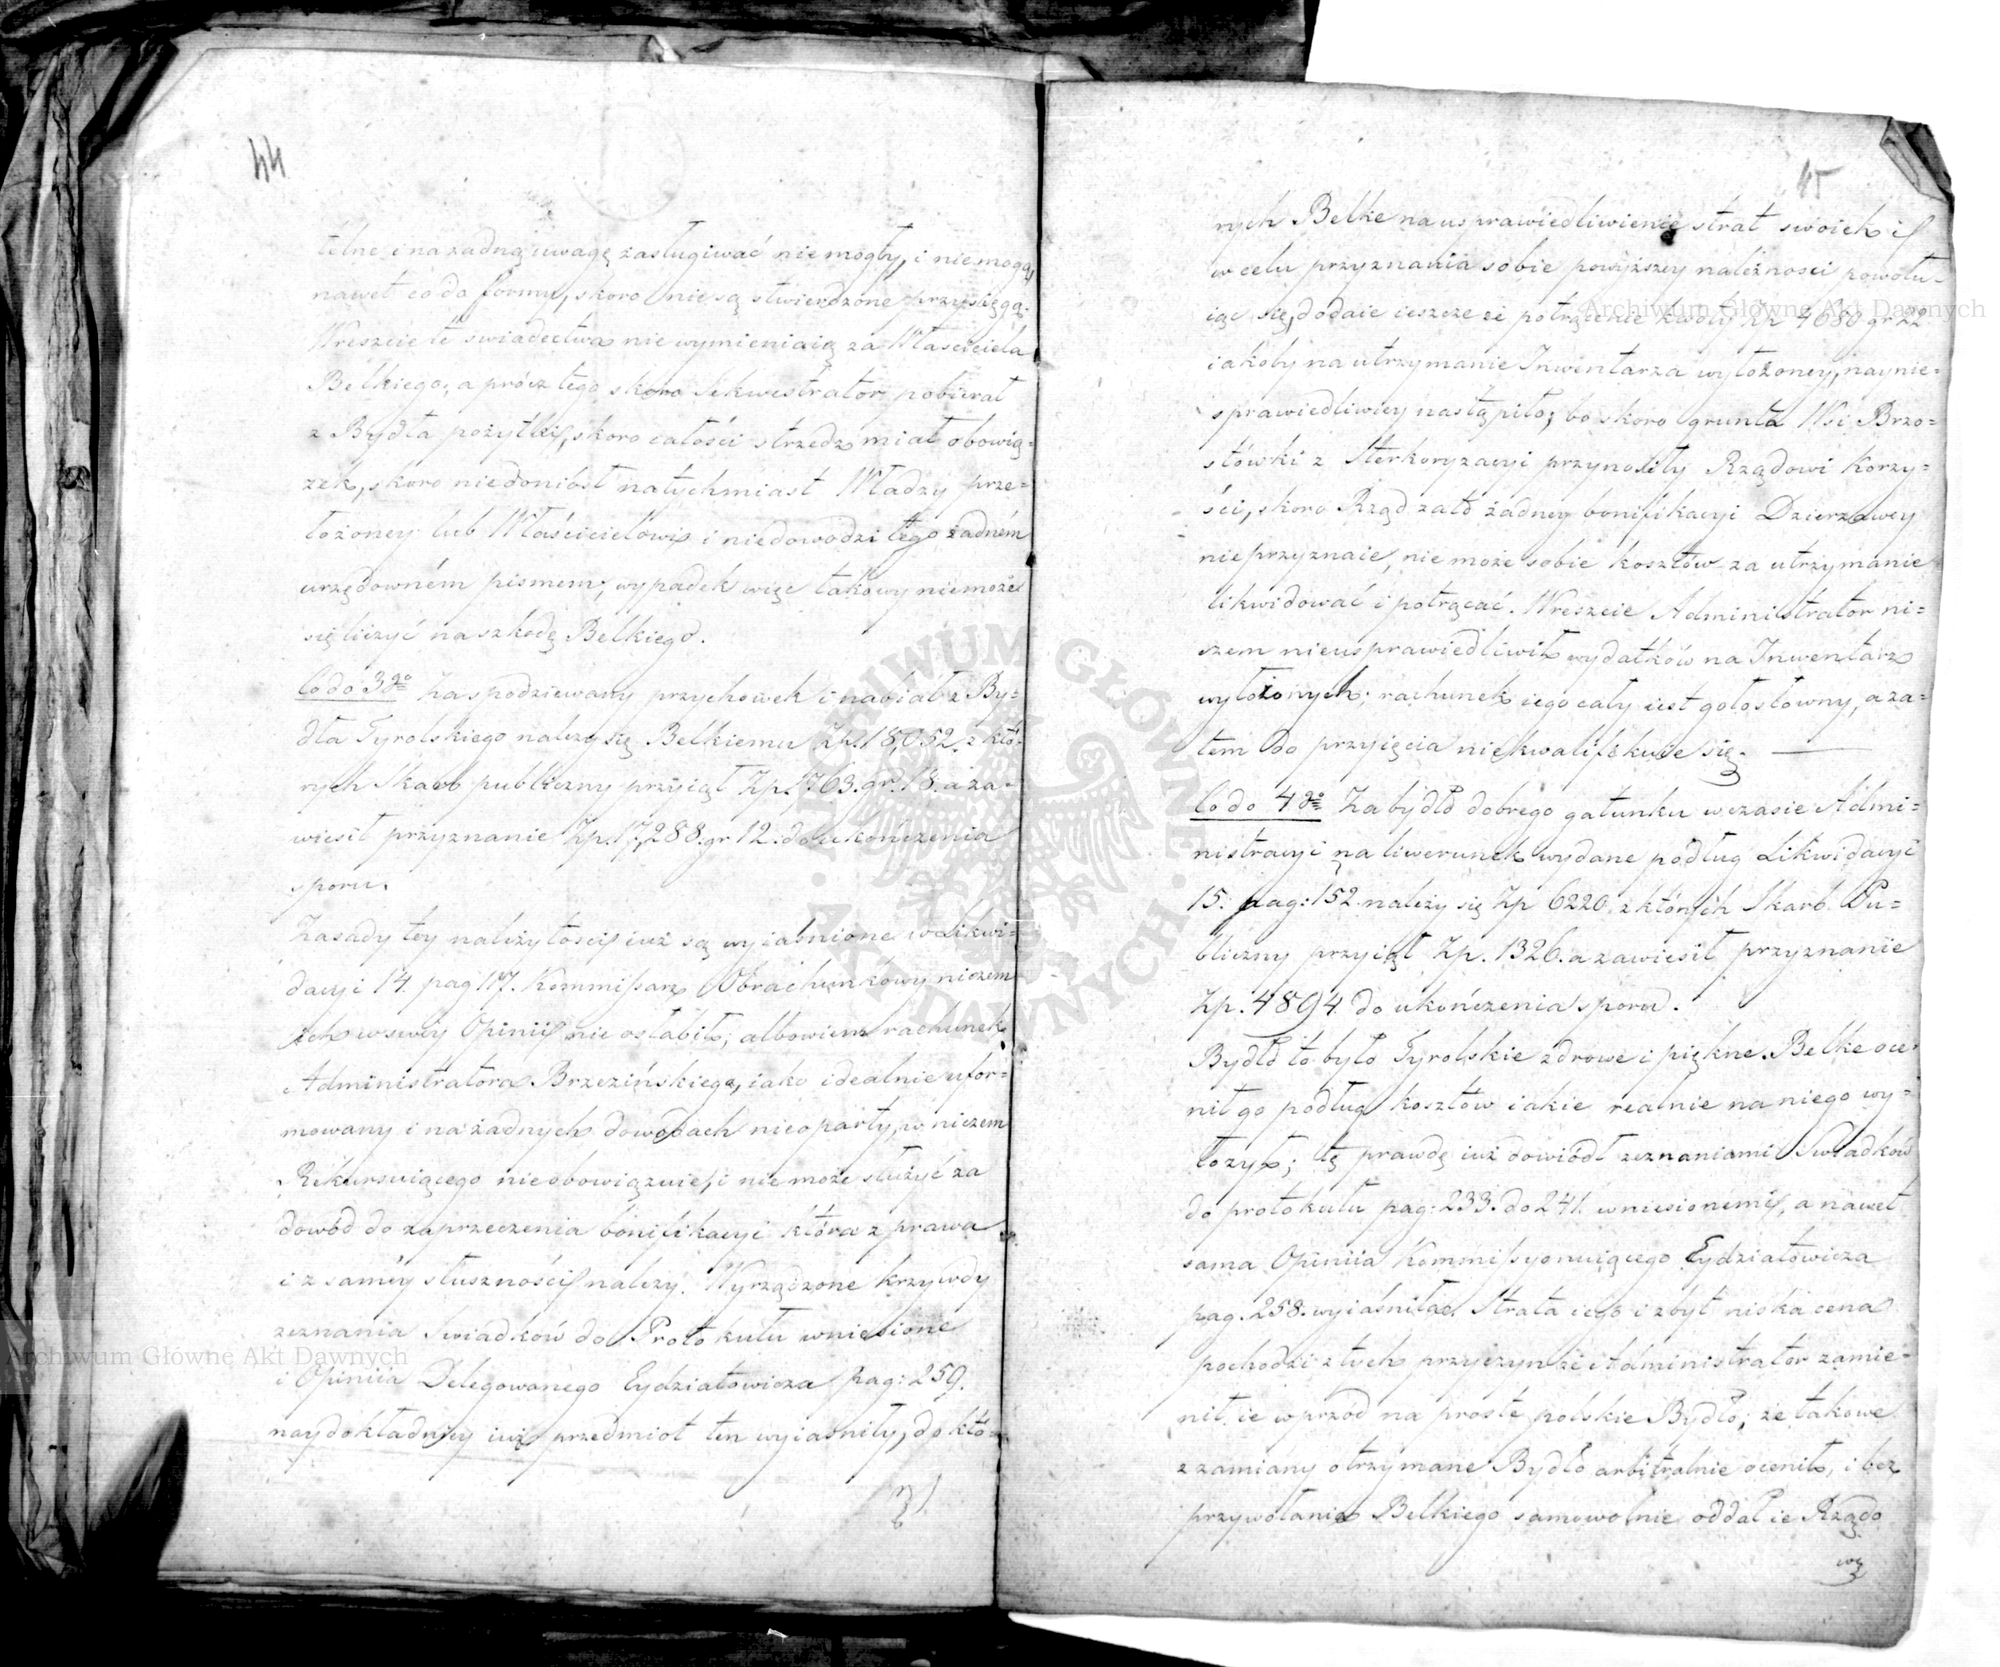 44
telne, i na żadną uwagę zasługiwać nie mogły, i nie mogą
nawet co do formy, skoro nie są stwierdzone przysięgą.
Wreszcie te swiadectwa nie wymieniaią za Właściciela
Belkiego; a prócz tego skoro Sekwestrator pobierał
z Bydła pożytki, skoro całości strzedz miał obowią=
zek, skoro niedoniósł natychmiast Władzy prze=
łożoney lub Właścicielowi i niedowodzi tego żadném
urzędowném pismem; wypadek więc takowy niemoże
się liczyć na szkodę Belkiego.
Co do 3go Za spodziewany przychowek i nabiał z By=
dła Tyrolskiego należy się Belkiemu Zp. 18,052. z któ=
rych Skarb publiczny przyiął Zp. 763. gr. 18. a za=
wiesił przyznanie Zp. 17,288. gr 12. do ukończenia
sporu.
Zasady tey należytości iuż są wyiaśnione w Likwi=
dacyi 14. pag 117. Kommissarz Obrachunkowy niczem
ich w swey Opinii nie osłabił; albowiem rachunek
Administratora Brzezińskiego, iako idealnie ufor=
mowany i na żadnych dowodach nieoparty, w niczem
Rekursuiącego nieobowiązuie, i nie może służyć za
dowód do zaprzeczenia bonifikacyi która z prawa
i z saméy słuszności należy. Wyrządzone krzywdy
zeznania Swiadków do Protokułu wniesione
i Opiniia Delegowanego Eydziatowicza Pag: 259.
naydokładniey iuż przedmiot ten wyiaśniły, do któ=
rych
45
rych Belke na usprawiedliwienie strat swoich i
w celu przyznania sobie powyższey należności powołu=
iąc się, dodaie ieszcze że potrącenie kwoty Zp 4680 gr 22
iakoby na utrzymanie Inwentarza wyłożoney, naynie=
sprawiedliwiey nastąpiło; bo skoro grunta Wsi Brzo=
stówki z Sterkoryzacyi przynosiły Rządowi Korzy=
ści, skoro Rząd za to żadney bonifikacyi Dzierzawcy
nieprzyznaie, nie może sobie kosztów za utrzymanie
likwidować i potrącać. Wreszcie Administrator ni=
czem nieusprawiedliwił wydatków na Inwentarz
wyłożonych; rachunek iego cały iest gołosłowny, a za=
tem do przyięcia niekwalifikuie się.
Co do 4go Za bydło dobrego gatunku w czasie Admi=
nistracyi na liwerunek wydane podług Likwidacyi
15: pag: 152. należy się Zp 6220. z których Skarb Pu=
bliczny przyiął Zp. 1326. a zawiesił przyznanie
Zp. 4894. do ukończenia sporu.
Bydło to było Tyrolskie zdrowe i piękne. Belke oce=
nił go podług kosztów iakie realnie na niego wy=
łożył; tę prawdę iuż dowiódł zeznaniami Swiadków
do protokułu pag: 233. do 241. wniesionemi, a nawet
sama Opiniia Kommissyonuiącego Eydziatowicza
pag. 258. wyiaśniła. Strata iego i zbyt niska cena
pochodzi z tych przyczyn że Administrator zamie=
nił ie wprzód na proste polskie Bydło; że takowe
z zamiany otrzymane Bydło arbitralnie ocenił, i bez
przywołania Belkiego samowolnie oddał ie Rządo
wę
Archiwum Główne Akt Dawnych
Archiwum Główne Akt Dawnych
ARCHIWUM GŁÓWNE AKT DAWNYCH